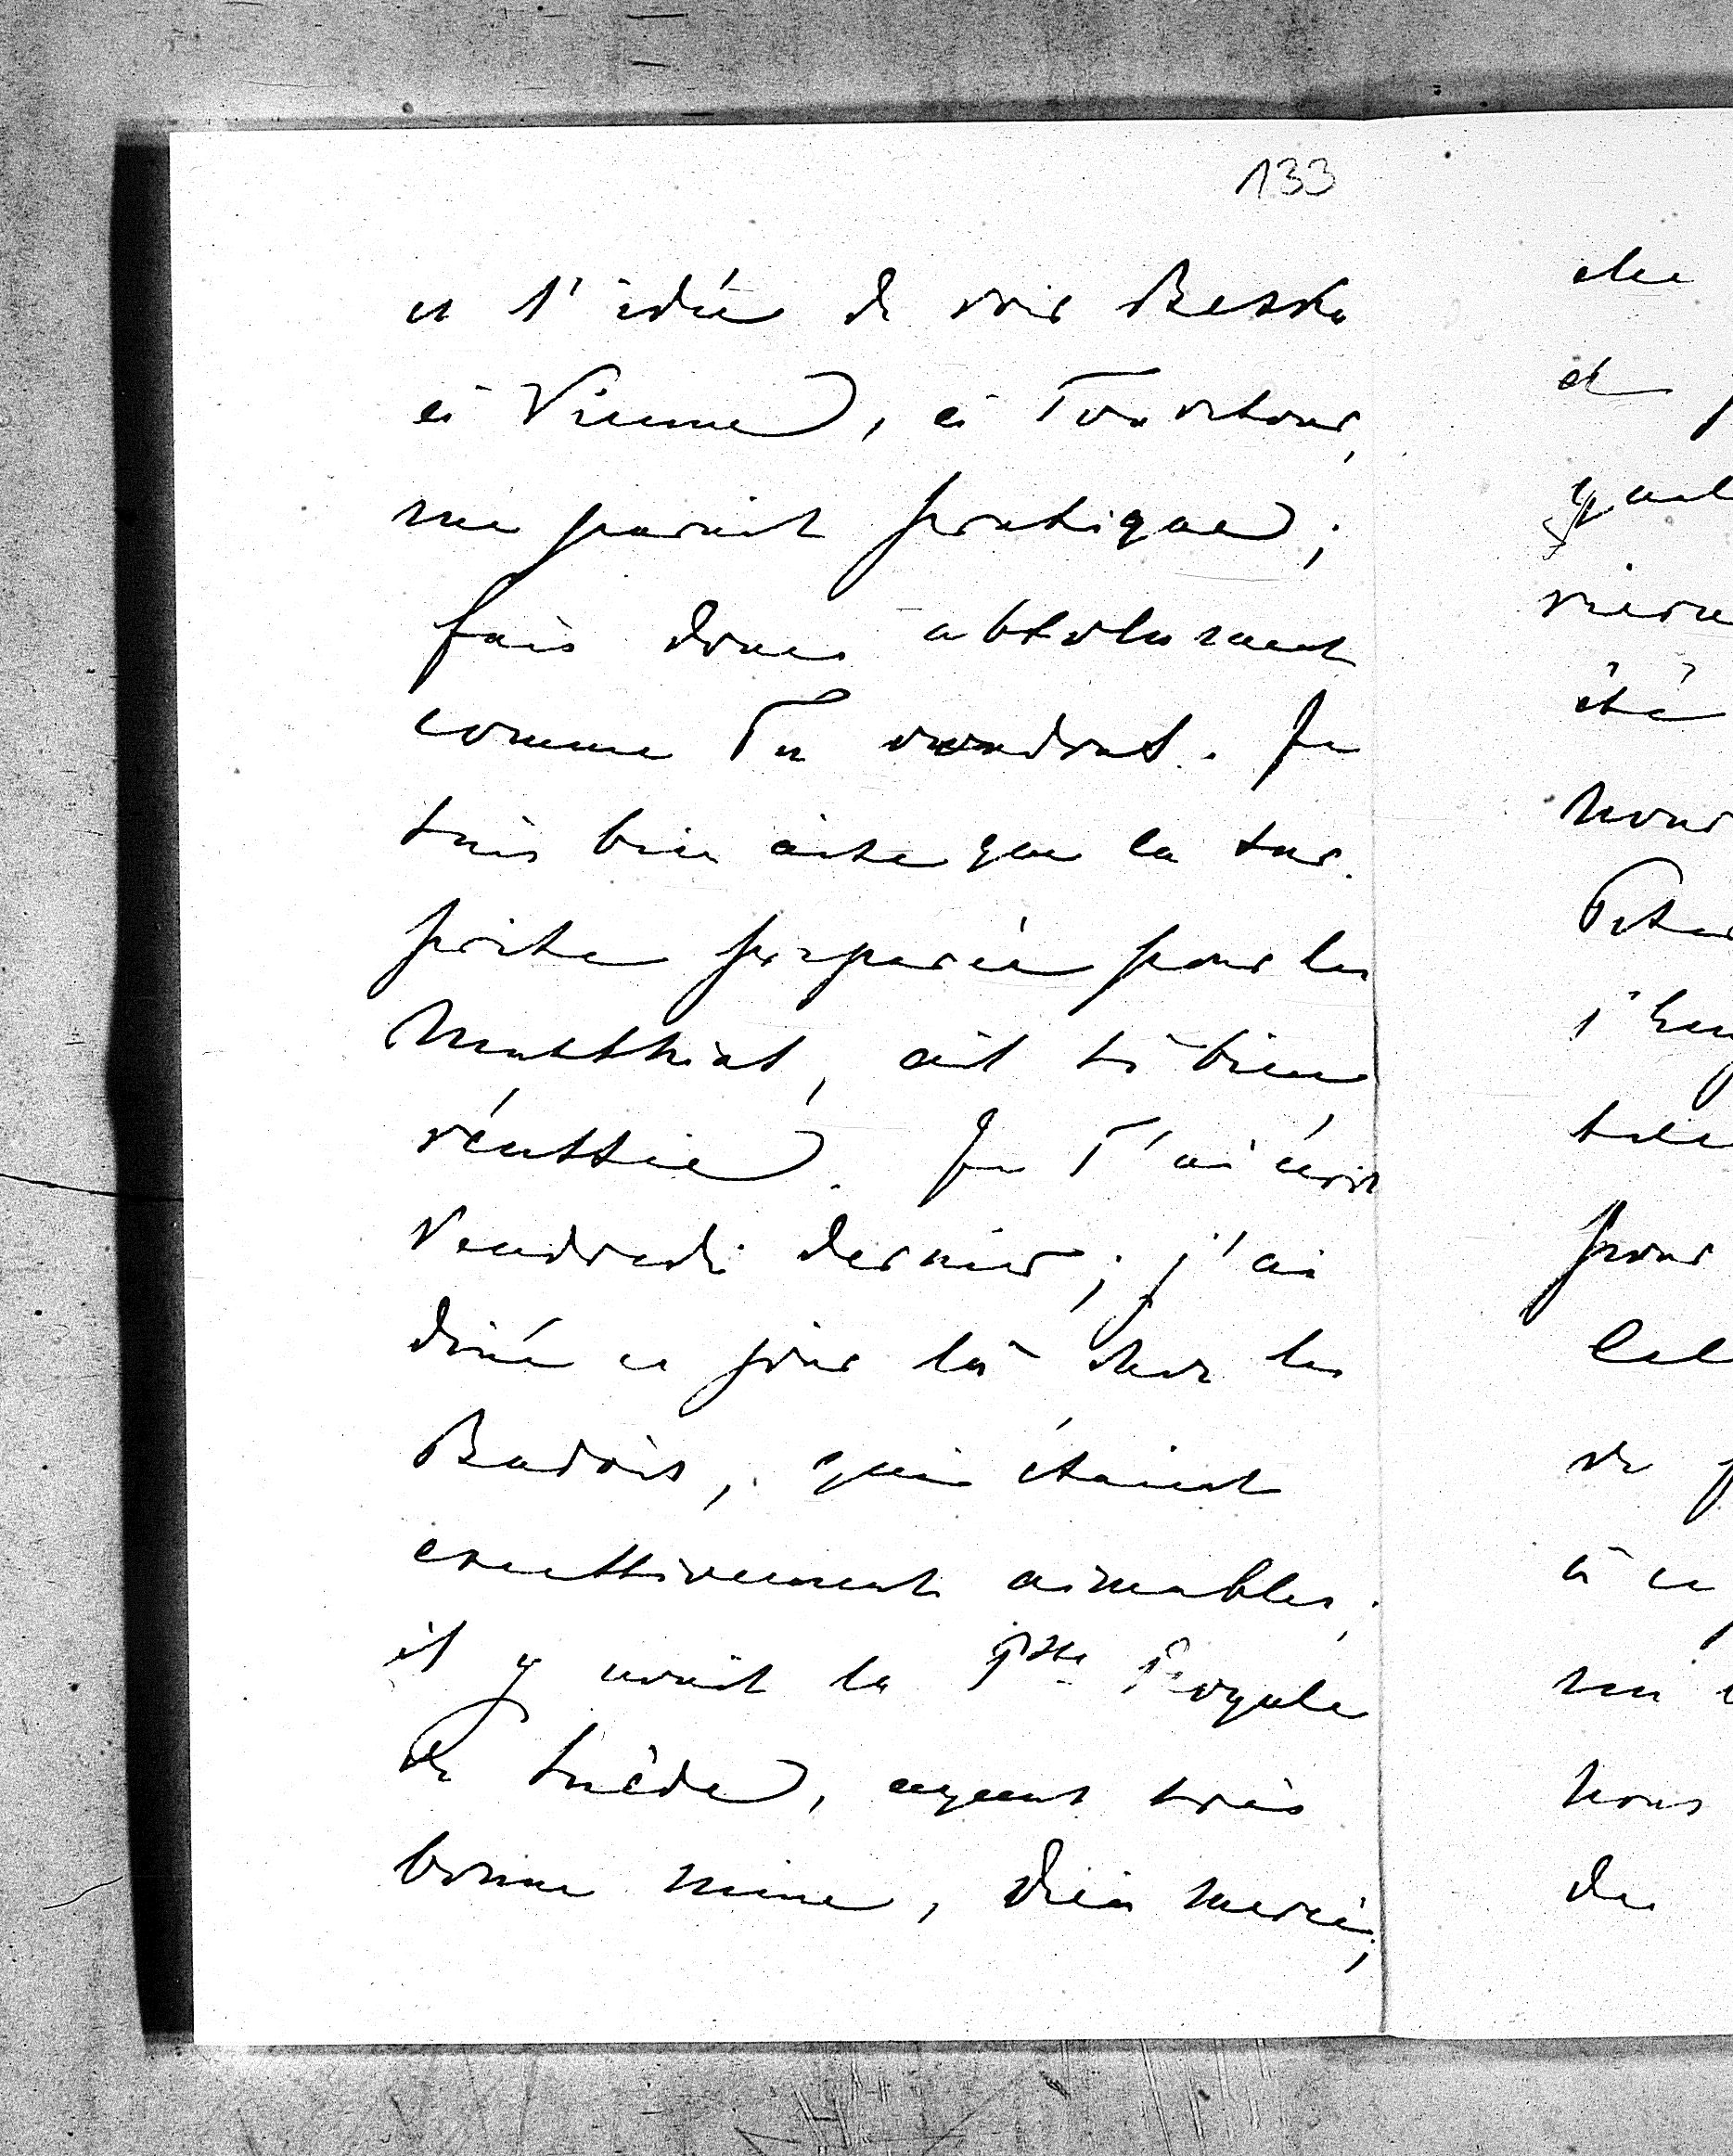 133
et l'idée de voir Beska
à Vienne, à Ton retour,
me parait pratique;
fais donc absolument
comme Tu voudras. Je
suis bien aise que la sur-
prise préparée pour les
Matthias, ait si bien
réussie. Je T'ai écrit
Vendredi dernier; j'ai
diné ce jour là chez les
Badois, qui étaient
excessivement aimables;
il y avait la Psse Royale
de Suède, ayant très
bonne mine, Dieu merci;
et
été
pour
à ce
nous
de